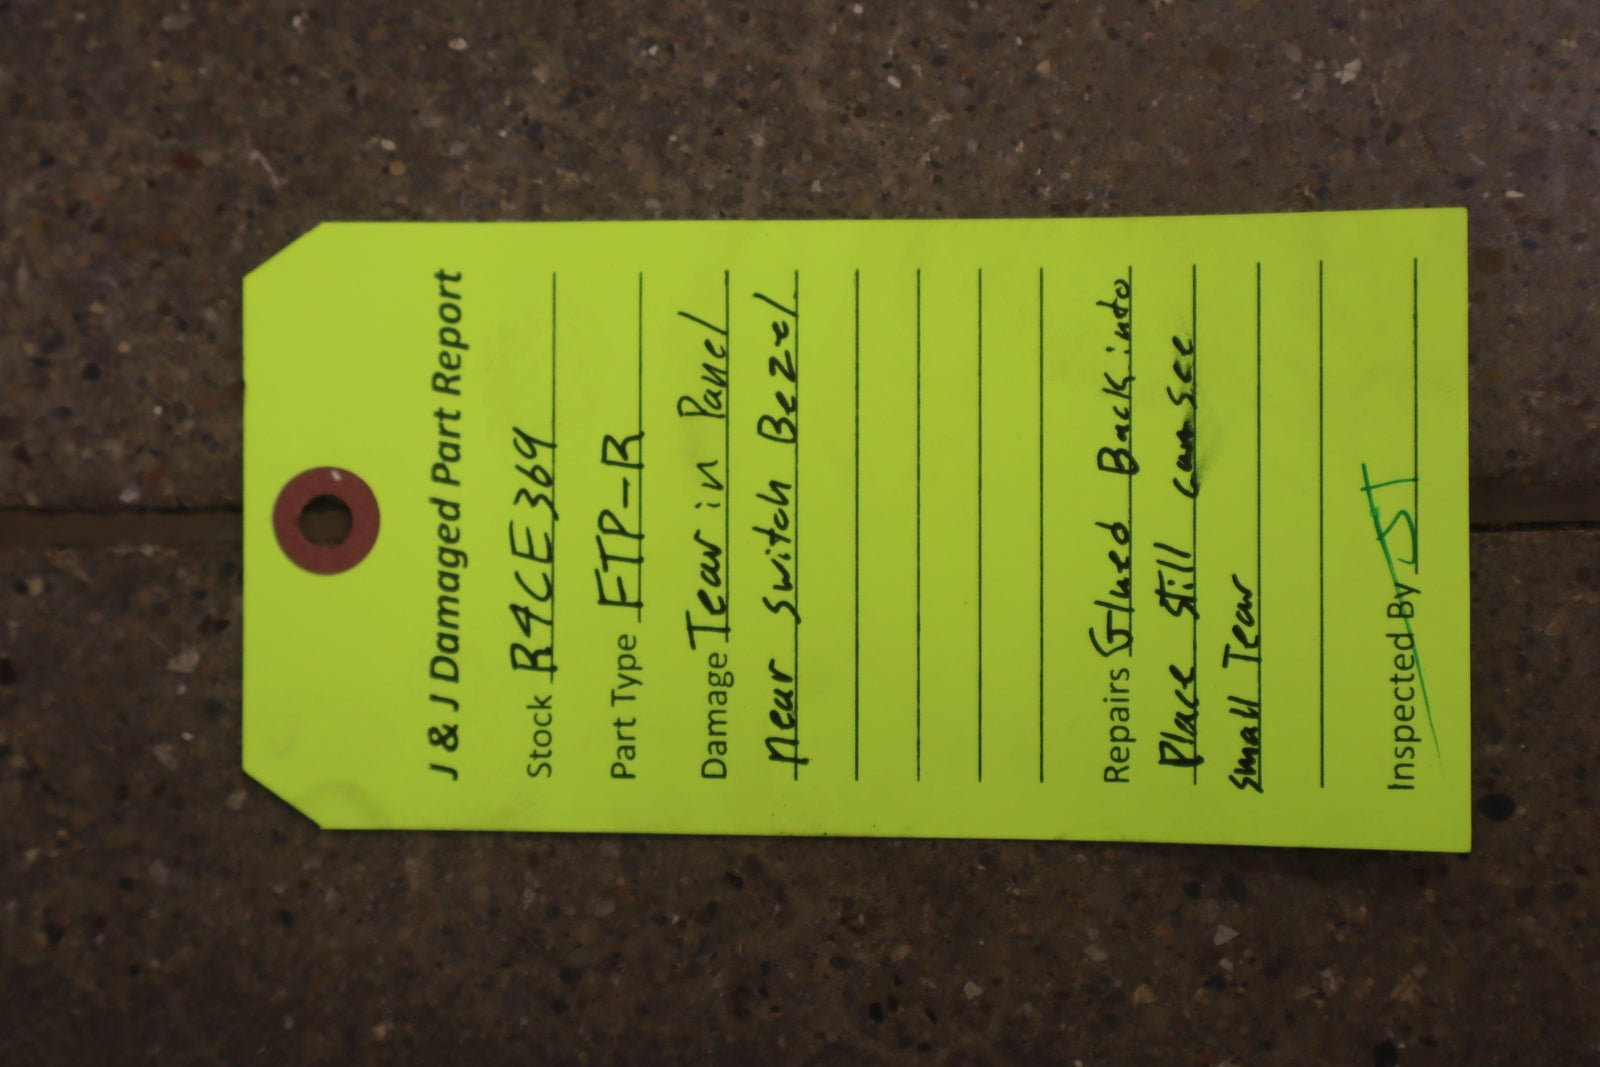 J & J Damaged Part Report
Stock R4CE369
Part Type FTP-R
Damage Tear in Panel
near switch Bezel
Repairs Glued Back into
Place still can see
small Tear
Inspected By